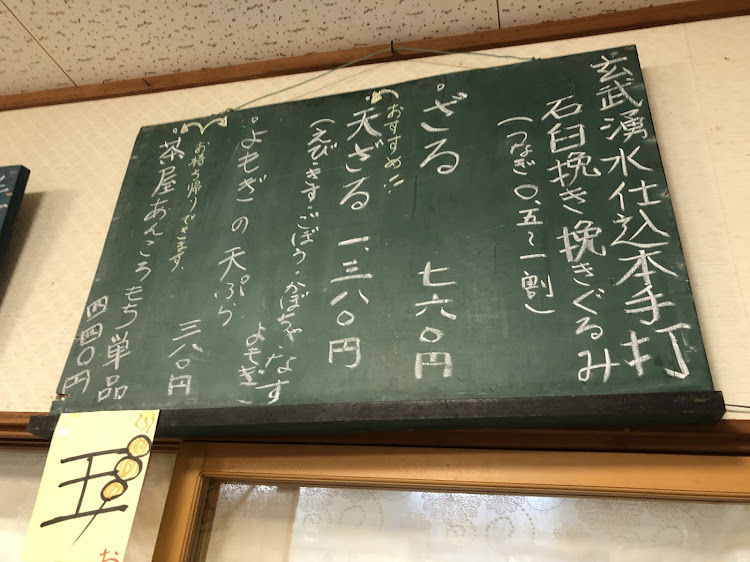 玄武湧水仕込本手打
石臼挽き挽きぐるみ
(つなぎ〇、五〜一割)
・ざる 七六〇円
おすすめ!!
・天ざる 一、三八〇円
(えび・きす・ごぼう・かぼちゃ・なす
よもぎ)
・よもぎの天ぷら 三八〇円
お持ち帰りできます。
・茶屋あんころもち単品
四四〇円